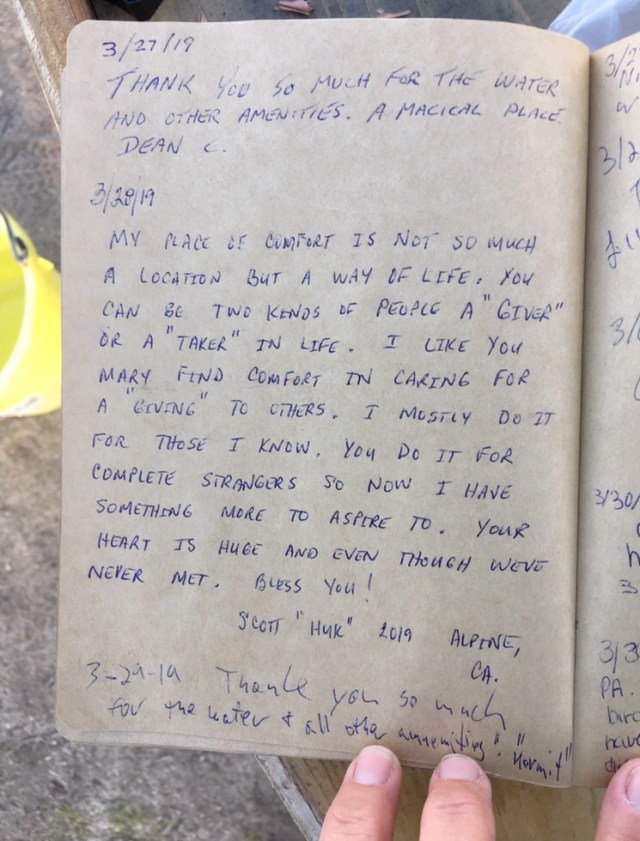 3/27/19
THANK YOU SO MUCH FOR THE WATER
AND OTHER AMENITIES. A MAGICAL PLACE
DEAN C.
3/28/19
MY PLACE OF COMFORT IS NOT SO MUCH
A LOCATION BUT A WAY OF LIFE. YOU
CAN BE TWO KINDS OF PEOPLE A "GIVER"
OR A "TAKER" IN LIFE. I LIKE YOU
MARY FIND COMFORT IN CARING FOR
A "GIVING" TO OTHERS. I MOSTLY DO IT
FOR THOSE I KNOW. YOU DO IT FOR
COMPLETE STRANGERS SO NOW I HAVE
SOMETHING MORE TO ASPIRE TO. YOUR
HEART IS HUGE AND EVEN THOUGH WEVE
NEVER MET. BLESS YOU!
SCOTT "HUK" 2019 ALPINE,
CA.
3-29-19 Thank you so much
for the water & all other ammenities. "Hormit"
3/2
3/2
3/
3/30/
3/3
PA.